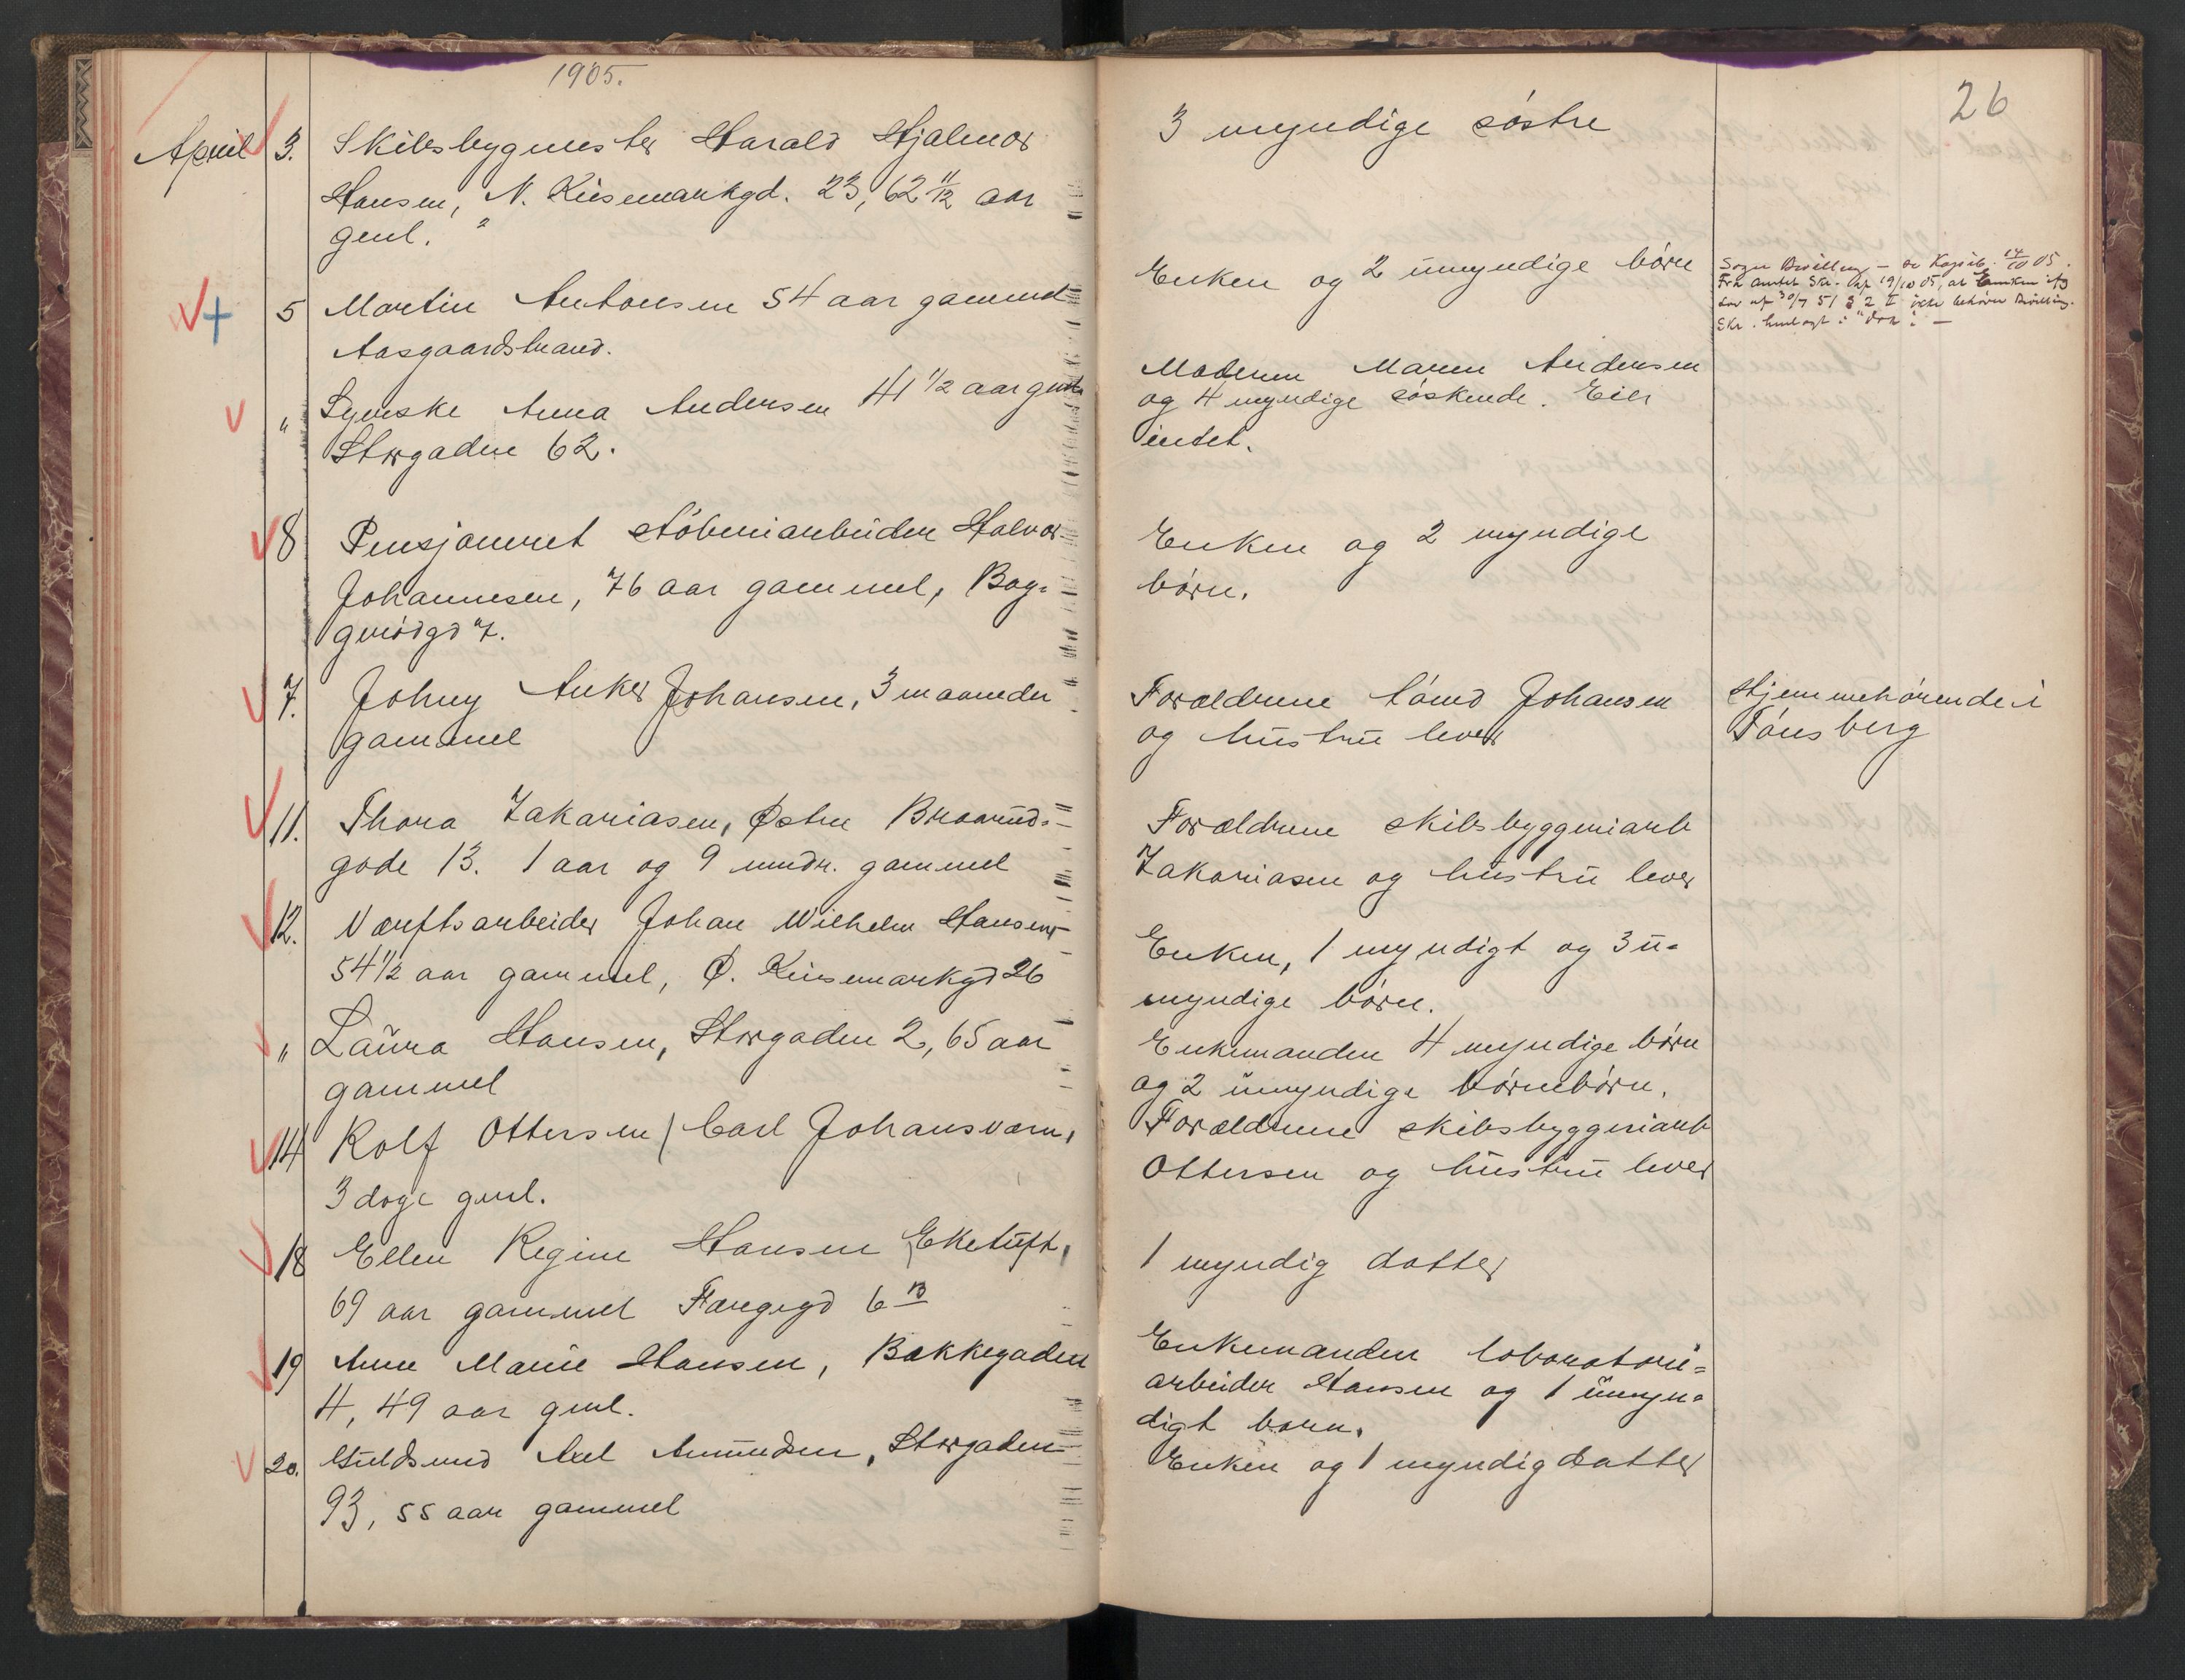 1905.
26
April 3. Skibsbygmester Harald Hjalmar
Hansen, N. Kirsemarkgd. 23, 62 11/12 aar
gml.
3 myndige søstre
5 Martin Antonsen 54 aar gammel
Aasgaardstrand.
Enken og 2 umyndige børn
Søger Bevilling - se Kopib. 05.
Fra amtet Skr. af 19/10 05, at Enken
lov af 30/7 51 § 2 ikke behøver Bevilling.
Skr. henlagt i
" Syerske Anna Andersen 41 1/2 aar gml
Storgaden 62.
Moderen Maren Andersen
og 4 myndige søskende. Eier
intet.
8 Pensjoneret støberiarbeider Halvor
Johannesen, 76 aar gammel, Bag-
grødgd 7.
Enken og 2 myndige
børn.
7. Johny Anker Johansen, 3 maaneder
gammel
Forældrene tømd Johansen
og hustru lever
Hjemmehørende i
Tønsberg
11. Thora Zakariasen, Østre Braarud-
gade 13. 1 aar og 9 mndr. gammel
Forældrene skibsbyggeriarb
Zakariasen og hustru lever
12. Værftsarbeider Johan Wilhelm Hansen
54 1/2 aar gammel, Ø. Kirsemarkgd 26
Enken, 1 myndigt og 3 u-
myndige børn.
" Laura Hansen, Storgaden 2, 65 aar
gammel
Enkemanden 4 myndige børn
og 2 umyndige børnebørn.
14 Rolf Ottersen / Carl Johansværn,
3 dage gml.
Forældrene skibsbyggeriarb
Ottersen og hustru lever
18 Ellen Regine Hansen Eketuft,
69 aar gammel Fangegd 6 B
1 myndig datter
19 Anne Marie Hansen, Bakkegaden
4, 49 aar gml.
Enkemanden laboratorie-
arbeider Hansen og 1 umyn-
digt barn.
20. Guldsmed Axel Amundsen, Storgaden
93, 55 aar gammel
Enken og 1 myndig datter